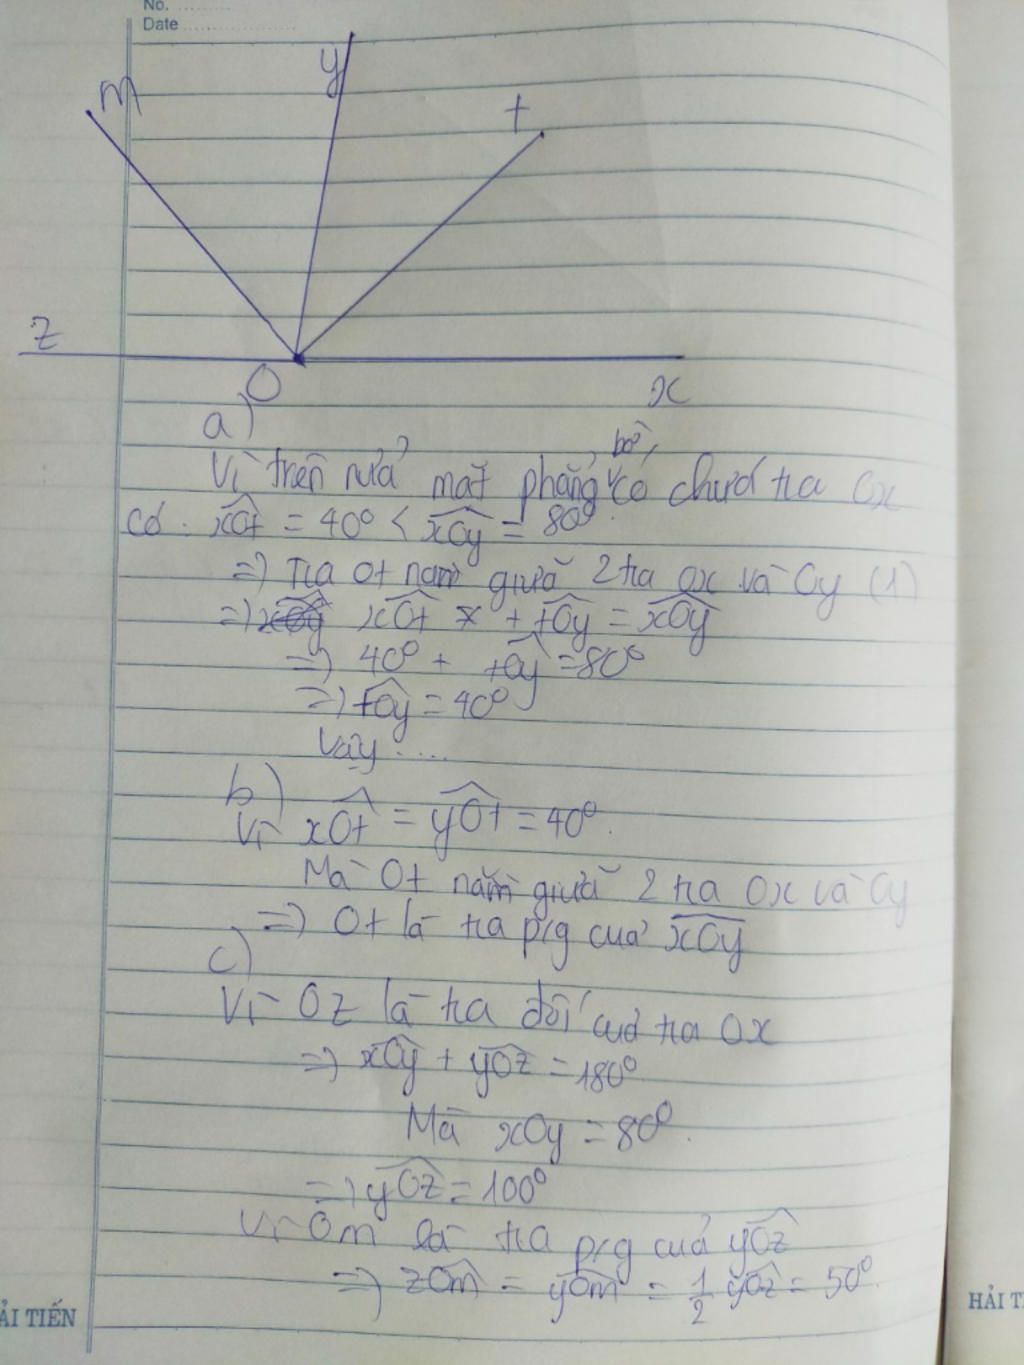 No. ..........
Date ....................
m
y
t
z
O
x
a)
Vì trên nửa mặt phẳng bờ có chứa tia Ox
Có: xOt = 40° < xOy = 80°
=> Tia Ot nằm giữa 2 tia Ox và Oy (1)
=> xOt + tOy = xOy
=> 40° + tOy = 80°
=> tOy = 40°
Vậy ....
b)
Vì xOt = yOt = 40°.
Mà Ot nằm giữa 2 tia Ox và Oy
=> Ot là tia p/g của xOy
c)
Vì Oz là tia đối của tia Ox
=> xOy + yOz = 180°
Mà xOy = 80°.
=> yOz = 100°
Vì Om là tia p/g của yOz
=> zOm = yOm = 1/2 yOz = 50°.
ẢI TIẾN
HẢI T